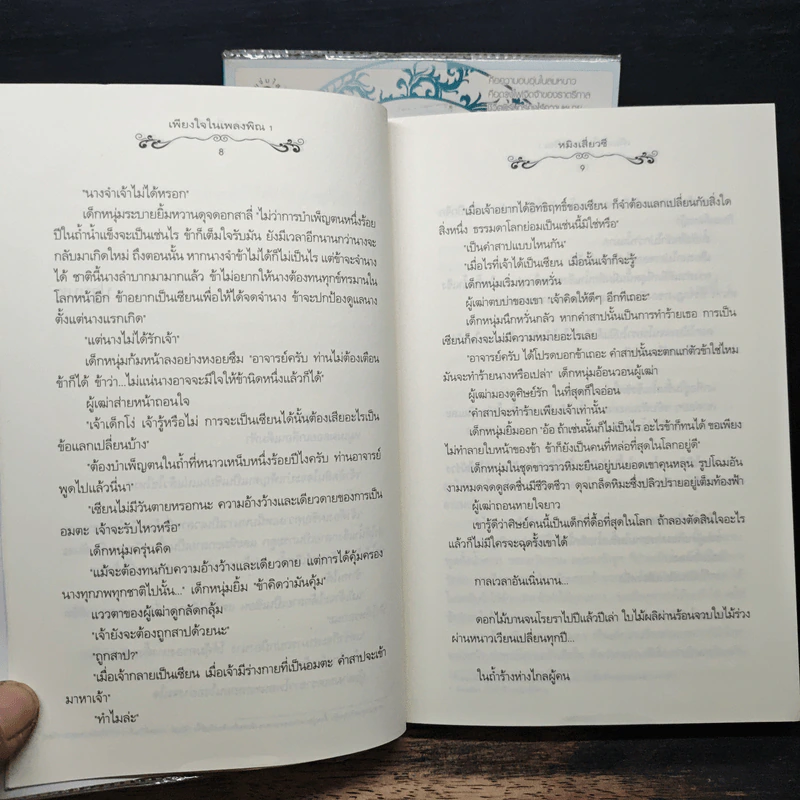 คือความอบอุ่นในลมหนาว
เพียงใจในเพลงพิณ 1
8
"นางจำเจ้าไม่ได้หรอก"
เด็กหนุ่มระบายยิ้มหวานดุจดอกสาลี่ "ไม่ว่าการบำเพ็ญตนหนึ่งร้อย
ปีในถ้ำน้ำแข็งจะเป็นเช่นไร ข้าก็เต็มใจรับมัน ยังมีเวลาอีกนานกว่านางจะ
กลับมาเกิดใหม่ ถึงตอนนั้น หากนางจำข้าไม่ได้ก็ไม่เป็นไร แต่ข้าจะจำนาง
ได้ ชาตินี้นางลำบากมามากแล้ว ข้าไม่อยากให้นางต้องทนทุกข์ทรมานใน
โลกหน้าอีก ข้าอยากเป็นเซียนเพื่อให้ได้จดจำนาง ข้าจะปกป้องดูแลนาง
ตั้งแต่นางแรกเกิด"
"แต่นางไม่ได้รักเจ้า"
เด็กหนุ่มก้มหน้าลงอย่างหงอยซึม "อาจารย์ครับ ท่านไม่ต้องเตือน
ข้าก็ได้ ข้าว่า...ไม่แน่นางอาจจะมีใจให้ข้านิดหนึ่งแล้วก็ได้"
ผู้เฒ่าส่ายหน้าถอนใจ
"เจ้าเด็กโง่ เจ้ารู้หรือไม่ การจะเป็นเซียนได้นั้นต้องเสียอะไรเป็น
ข้อแลกเปลี่ยนบ้าง"
"ต้องบำเพ็ญตนในถ้ำที่หนาวเหน็บหนึ่งร้อยปีไงครับ ท่านอาจารย์
พูดไปแล้วนี่นา"
"เซียนไม่มีวันตายหรอกนะ ความอ้างว้างและเดียวดายของการเป็น
อมตะ เจ้าจะรับไหวหรือ"
เด็กหนุ่มครุ่นคิด
"แม้จะต้องทนกับความอ้างว้างและเดียวดาย แต่การได้คุ้มครอง
นางทุกภพทุกชาติไปนั้น..." เด็กหนุ่มยิ้ม "ข้าคิดว่ามันคุ้ม"
แววตาของผู้เฒ่าดูกลัดกลุ้ม
"เจ้ายังจะต้องถูกสาปด้วยนะ"
"ถูกสาป?"
"เมื่อเจ้ากลายเป็นเซียน เมื่อเจ้ามีร่างกายที่เป็นอมตะ คำสาปจะเข้า
มาหาเจ้า"
"ทำไมล่ะ"
หมิงเสี่ยวซี
9
"เมื่อเจ้าอยากได้อิทธิฤทธิ์ของเซียน ก็จำต้องแลกเปลี่ยนกับสิ่งใด
สิ่งหนึ่ง ธรรมดาโลกย่อมเป็นเช่นนี้มิใช่หรือ"
"เป็นคำสาปแบบไหนกัน"
"เมื่อไรที่เจ้าได้เป็นเซียน เมื่อนั้นเจ้าก็จะรู้"
เด็กหนุ่มเริ่มหวาดหวั่น
ผู้เฒ่าตบบ่าของเขา "เจ้าคิดให้ดีๆ อีกทีเถอะ"
เด็กหนุ่มนึกหวั่นกลัว หากคำสาปนั้นเป็นการทำร้ายเธอ การเป็น
เซียนก็คงจะไม่มีความหมายอะไรเลย
"อาจารย์ครับ ได้โปรดบอกข้าเถอะ คำสาปนั้นจะตกแก่ตัวข้าใช่ไหม
มันจะทำร้ายนางหรือเปล่า" เด็กหนุ่มอ้อนวอนผู้เฒ่า
ผู้เฒ่ามองดูศิษย์รัก ในที่สุดก็ใจอ่อน
"คำสาปจะทำร้ายเพียงเจ้าเท่านั้น"
เด็กหนุ่มยิ้มออก "อ้อ ถ้าเช่นนั้นก็ไม่เป็นไร อะไรข้าก็ทนได้ ขอเพียง
ไม่ทำลายใบหน้าของข้า ข้าก็ยังเป็นคนที่หล่อที่สุดในโลกอยู่ดี"
เด็กหนุ่มในชุดขาวราวหิมะยืนอยู่บนยอดเขาคุนหลุน รูปโฉมอัน
งามหมดจดดูสดชื่นมีชีวิตชีวา ดุจเกล็ดหิมะซึ่งปลิวปรายอยู่เต็มท้องฟ้า
ผู้เฒ่าถอนหายใจยาว
เขารู้ดีว่าศิษย์คนนี้เป็นเด็กที่ดื้อที่สุดในโลก ถ้าลองตัดสินใจอะไร
แล้วก็ไม่มีใครจะฉุดรั้งเขาได้
กาลเวลาอันเนิ่นนาน...
ดอกไม้บานจนโรยราไปปีแล้วปีเล่า ใบไม้ผลิผ่านร้อนจวบใบไม้ร่วง
ผ่านหนาวเวียนเปลี่ยนทุกปี...
ในถ้ำร้างห่างไกลผู้คน